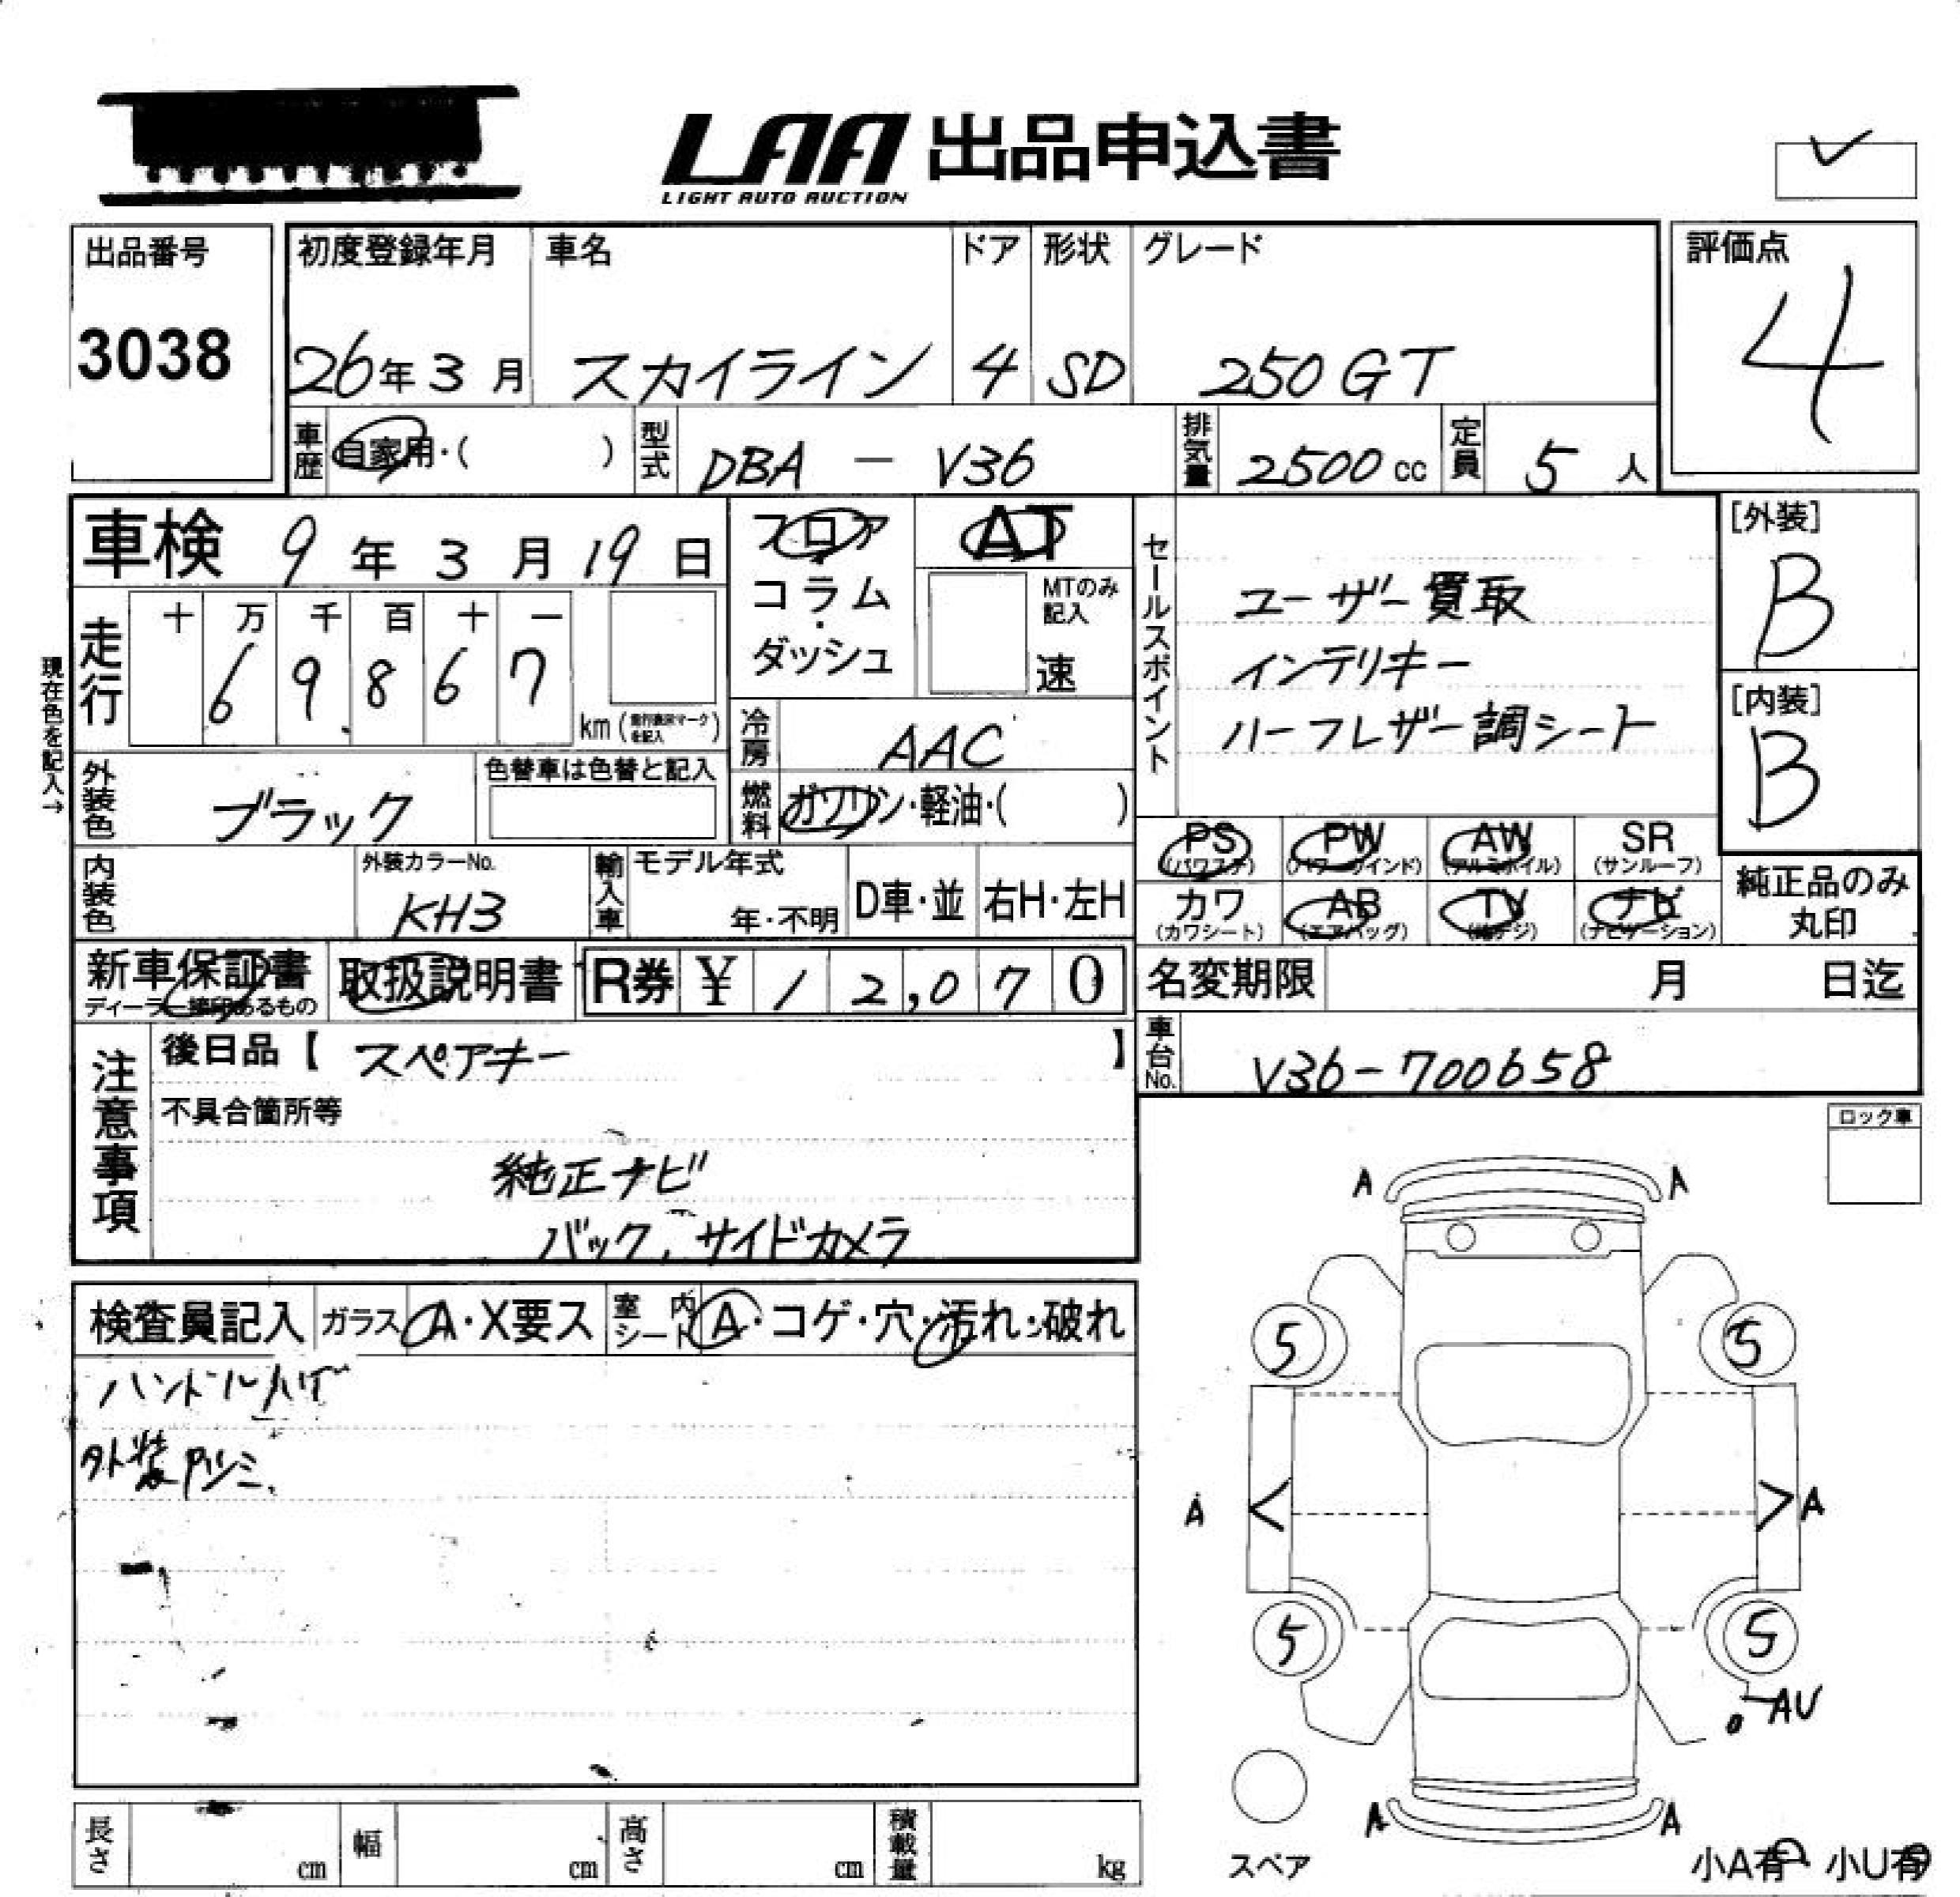 LAA 出品申込書
LIGHT AUTO AUCTION
出品番号
3038
初度登録年月
26年3月
車名
スカイライン
ドア
4
形状
SD
グレード
250GT
評価点
4
車歴 自家用・( )
型式 DBA - V36
排気量 2500cc
定員 5人
車検 9年3月19日
フロア
コラム・
ダッシュ
AT
MTのみ記入
速
走行
十 万 千 百 十 一
6 9 8 6 7
km(
現在色を記入→
冷房 AAC
燃料 ガソリン・軽油・( )
セールスポイント
ユーザー買取
インテリキー
ハーフレザー調シート
[外装]
B
[内装]
B
外装色 ブラック
色替車は色替と記入
内装色
外装カラーNo.
KH3
輸入車
モデル年式
年・不明
D車・並
右H・左H
PS (パワステ)
PW (パワーウインド)
AW (アルミホイル)
SR (サンルーフ)
カワ (カワシート)
AB (エアバッグ)
TV
ナビ (ナビゲーション)
純正品のみ
丸印
新車保証書
ディーラー捺印あるもの
取扱説明書
R券 ¥12,070
名変期限 月 日迄
車台No. V36-700658
注意事項
後日品【 スペアキー 】
不具合箇所等
純正ナビ
バック、サイドカメラ
ロック車
検査員記入
ガラス A・X要ス
室内シート A・コゲ・穴・汚れ・破れ
ハンドルハゲ
外装
A A
5 5
A A
5 5
AU
A A
スペア
小A有 小U有
長さ cm
幅 cm
高さ cm
積載量 kg